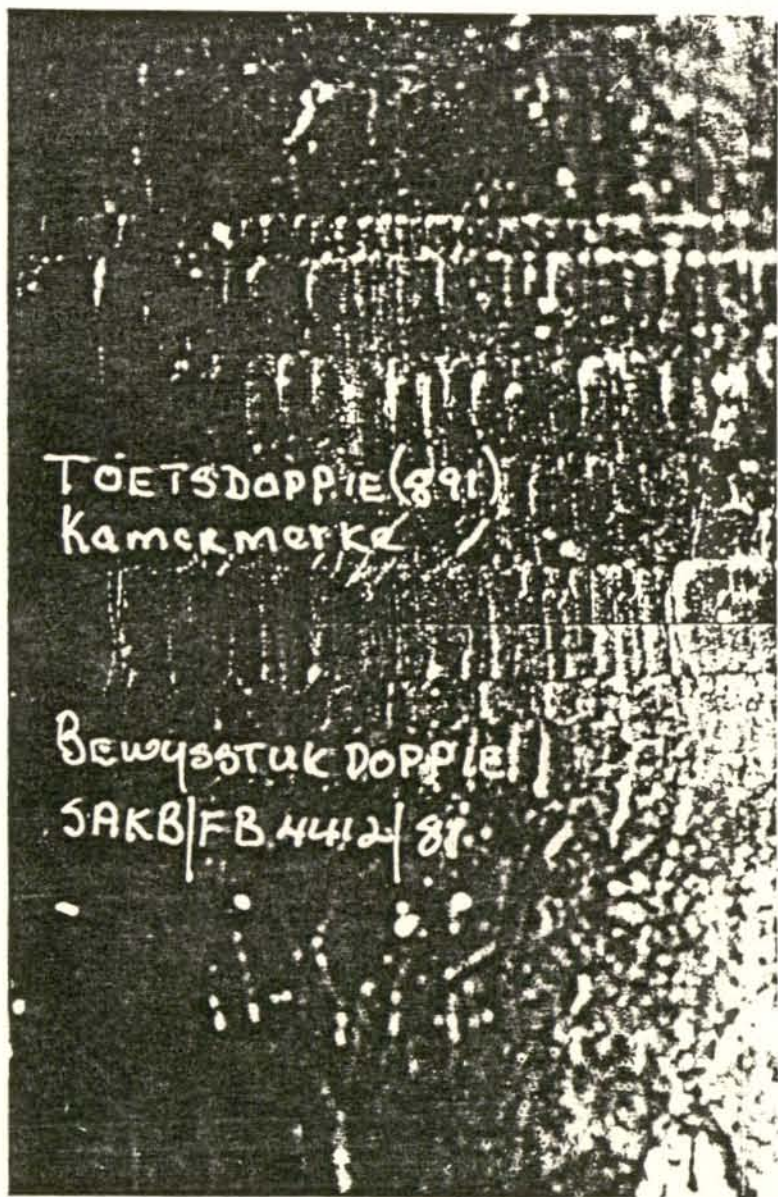 TOETSDOPPIE (891)
Kamermerke
BEWYSSTUK DOPPIE
SAKB/FB 4412/87